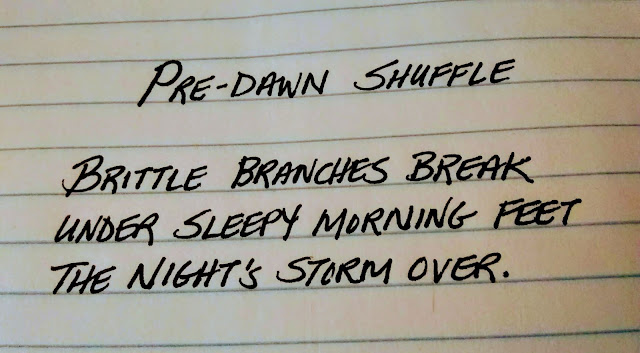 PRE-DAWN SHUFFLE
BRITTLE BRANCHES BREAK
UNDER SLEEPY MORNING FEET
THE NIGHT'S STORM OVER.